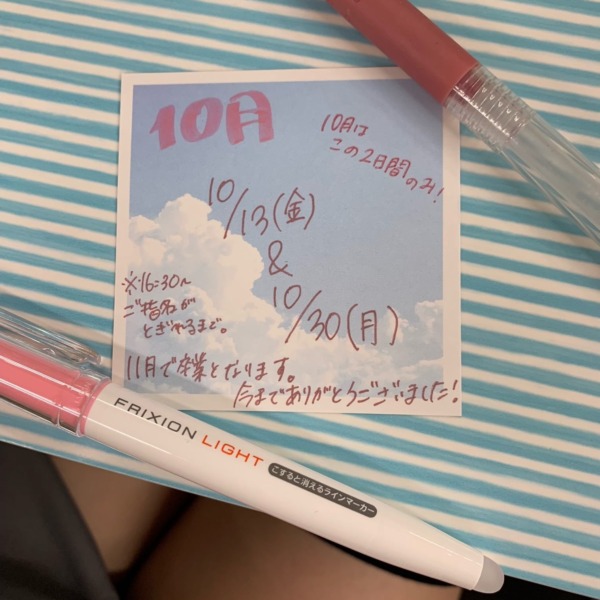 10月
10月は
この2日間
のみ!
10/13(金)
&
10/30(月)
※16:30〜
ご指名が
とぎれるまで。
11月で卒業となります。
今までありがとうございました!
FRIXION LIGHT
こすると消えるラインマーカー